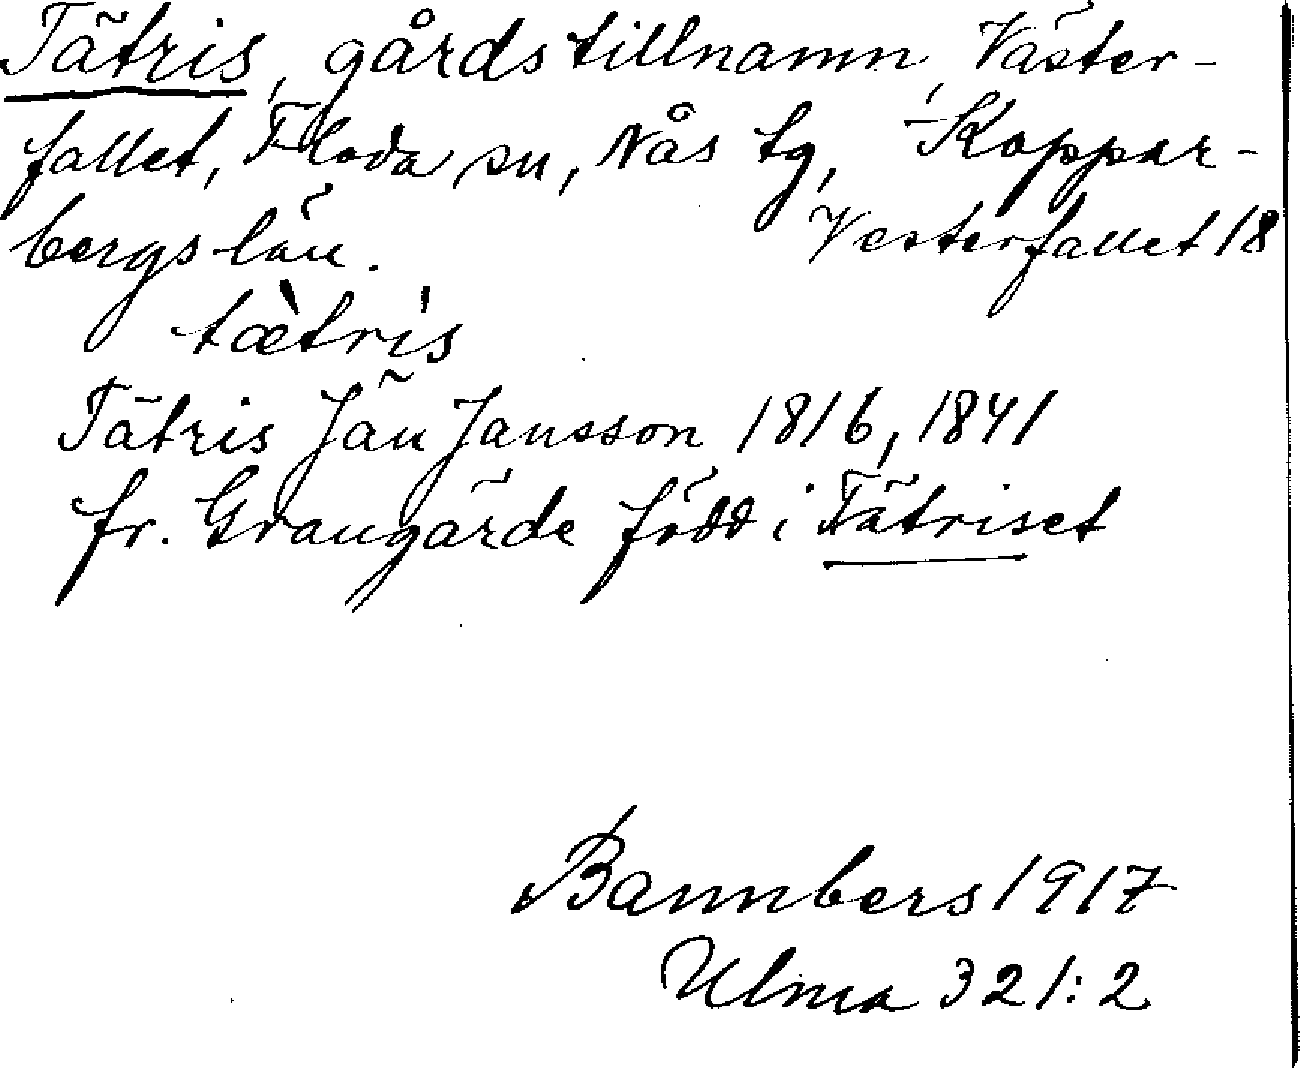 Tätris, gårdstillnamn, Väster-
fallet, Floda sn, Nås tg, Koppar-
bergs län.
Vesterfallet 18
tæ̀trìs
Tätris Jän Jansson 1816, 1841
fr. Grangärde född i Tätriset
Bannbers 1917
Ulma 321:2